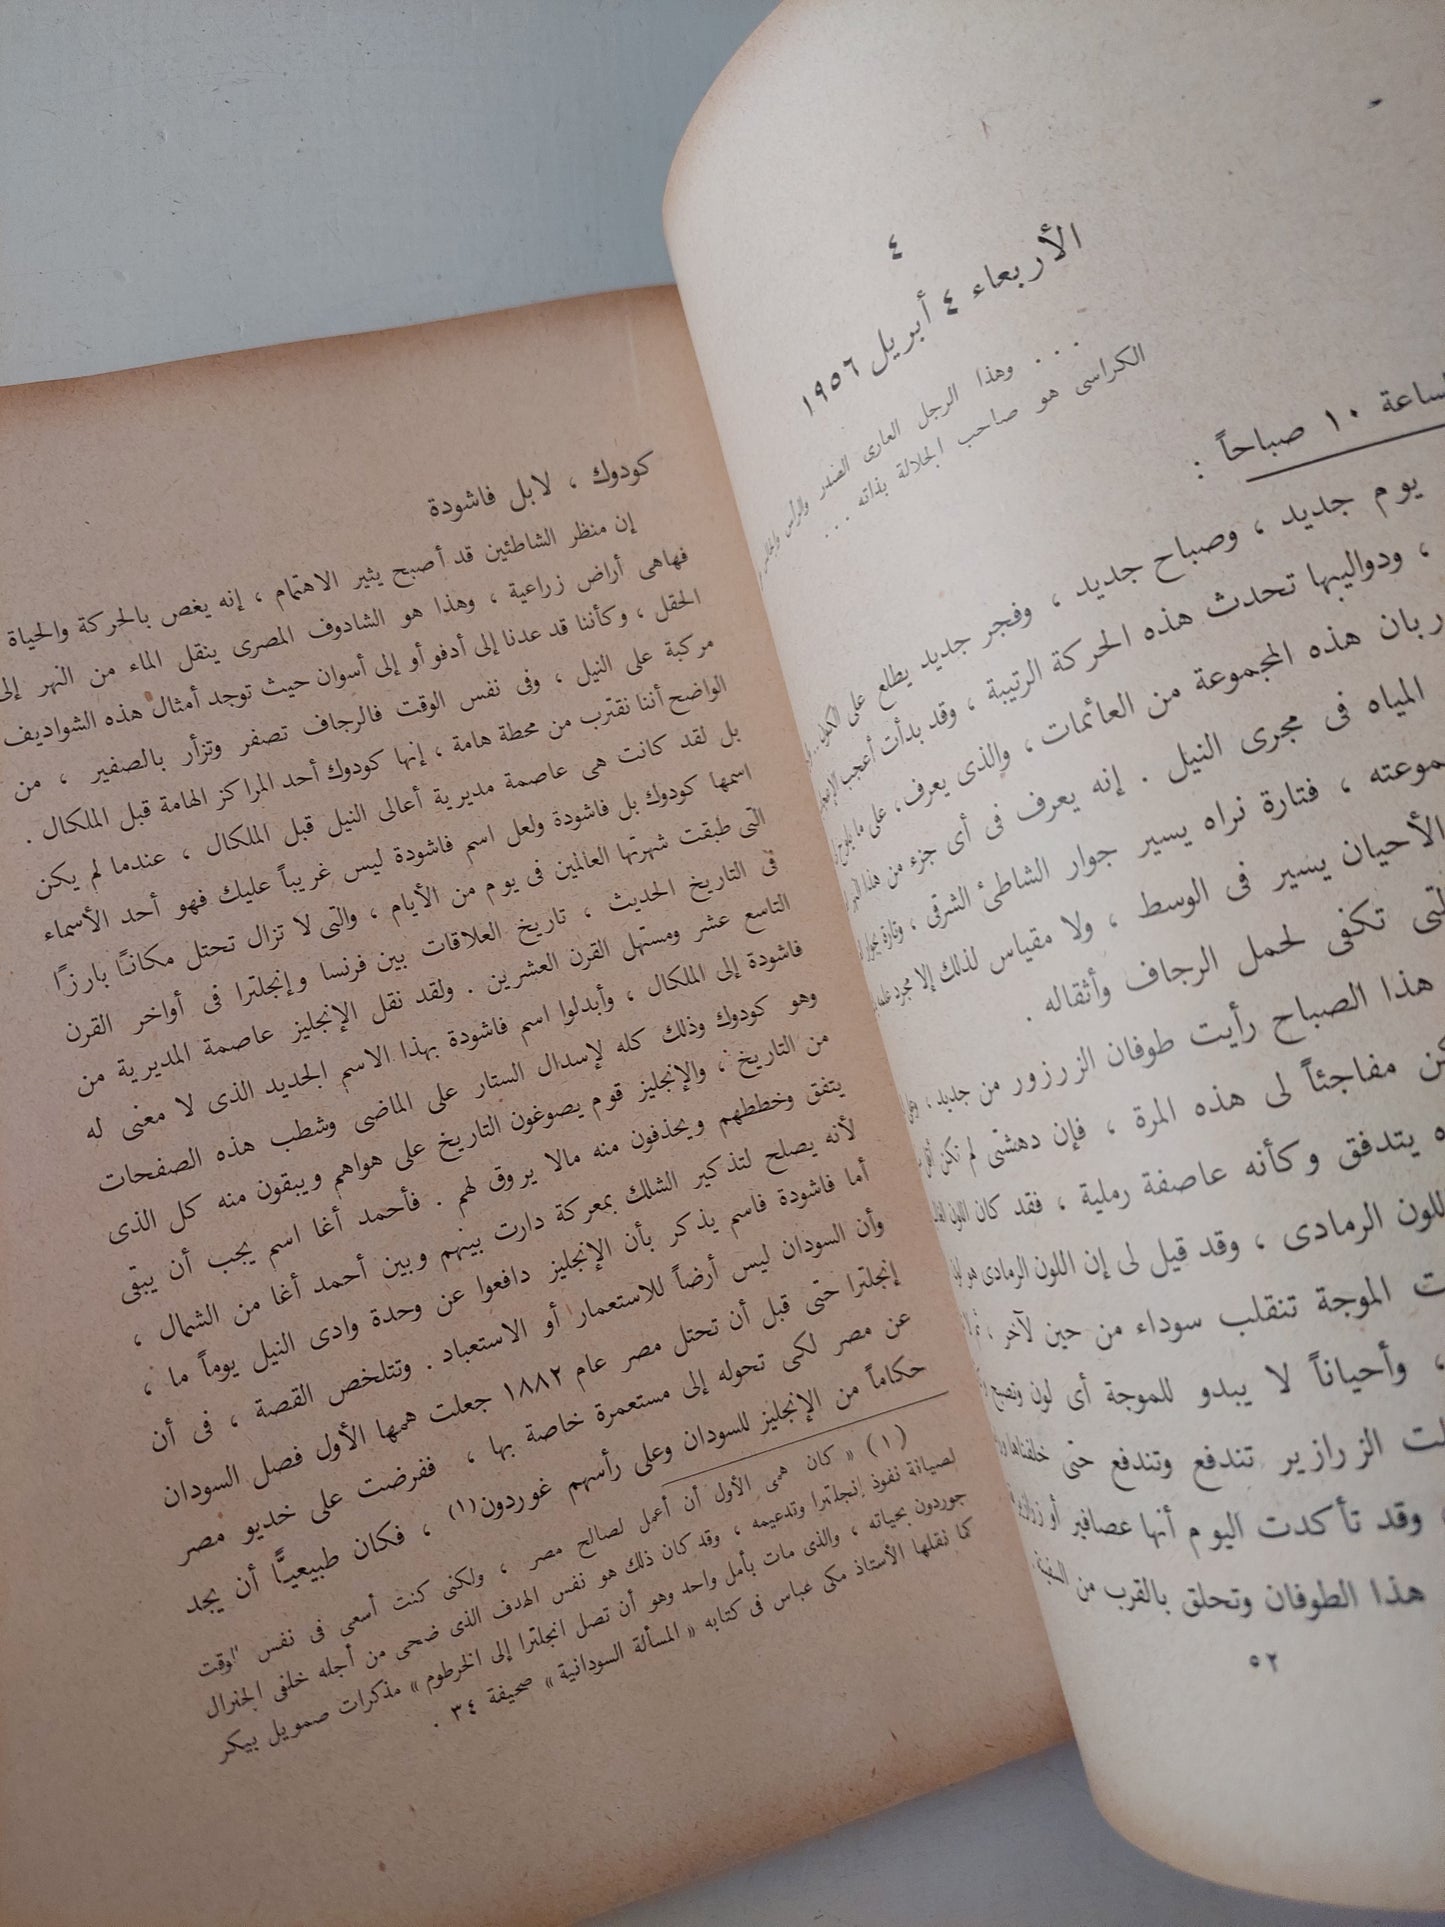 ٤
الأربعاء ٤ أبريل ١٩٥٦
. . . وهذا الرجل العارى الصدر والرأس والجالس
الكراسى هو صاحب الجلالة بذاته . . .
لساعة ١٠ صباحاً :
يوم جديد ، وصباح جديد ، وفجر جديد يطلع على الكون
، ودواليبها تحدث هذه الحركة الرتيبة ، وقد بدأت أعجب
ربان هذه المجموعة من العائمات ، والذى يعرف ، على ما يلوح
المياه فى مجرى النيل . إنه يعرف فى أى جزء من هذا النهر
موعته ، فتارة نراه يسير جوار الشاطئ الشرقى ، وتارة بجوار
الأحيان يسير فى الوسط ، ولا مقياس لذلك إلا مجرد علمه
لتى تكفى لحمل الرجاف وأثقاله .
هذا الصباح رأيت طوفان الزرزور من جديد ،
كن مفاجئاً لى هذه المرة ، فإن دهشتى لم تكن
ه يتدفق وكأنه عاصفة رملية ، فقد كان اللون
للون الرمادى ، وقد قيل لى إن اللون الرمادى هو
ت الموجة تنقلب سوداء من حين لآخر ،
، وأحياناً لا يبدو للموجة أى لون ونصبح
لت الزرازير تندفع وتندفع حتى خلفناها
، وقد تأكدت اليوم أنها عصافير أو زرازير
هذا الطوفان وتحلق بالقرب من السفينة .
٥٢
كودوك ، لابل فاشودة
إن منظر الشاطئين قد أصبح يثير الاهتمام ، إنه يغص بالحركة والحياة
فهاهى أراض زراعية ، وهذا هو الشادوف المصرى ينقل الماء من النهر إلى
الحقل ، وكأننا قد عدنا إلى أدفو أو إلى أسوان حيث توجد أمثال هذه الشواديف
مركبة على النيل ، وفى نفس الوقت فالرجاف تصفر وتزأر بالصفير ، من
الواضح أننا نقترب من محطة هامة ، إنها كودوك أحد المراكز الهامة قبل الملكال .
بل لقد كانت هى عاصمة مديرية أعالى النيل قبل الملكال ، عندما لم يكن
اسمها كودوك بل فاشودة ولعل اسم فاشودة ليس غريباً عليك فهو أحد الأسماء
التى طبقت شهرتها العالمين فى يوم من الأيام ، والتى لا تزال تحتل مكاناً بارزاً
فى التاريخ الحديث ، تاريخ العلاقات بين فرنسا وإنجلترا فى أواخر القرن
التاسع عشر ومستهل القرن العشرين . ولقد نقل الإنجليز عاصمة المديرية من
فاشودة إلى الملكال ، وأبدلوا اسم فاشودة بهذا الاسم الجديد الذى لا معنى له
وهو كودوك وذلك كله لإسدال الستار على الماضى وشطب هذه الصفحات
من التاريخ ، والإنجليز قوم يصوغون التاريخ على هواهم ويبقون منه كل الذى
يتفق وخططهم ويحذفون منه مالا يروق لهم . فأحمد أغا اسم يجب أن يبقى
لأنه يصلح لتذكير الشلك بمعركة دارت بينهم وبين أحمد أغا من الشمال ،
أما فاشودة فاسم يذكر بأن الإنجليز دافعوا عن وحدة وادى النيل يوماً ما ،
وأن السودان ليس أرضاً للاستعمار أو الاستعباد . وتتلخص القصة ، فى أن
إنجلترا حتى قبل أن تحتل مصر عام ١٨٨٢ جعلت همها الأول فصل السودان
عن مصر لكى تحوله إلى مستعمرة خاصة بها ، ففرضت على خديو مصر
حكاماً من الإنجليز للسودان وعلى رأسهم غوردون(١) ، فكان طبيعيًّا أن يجد
(١) « كان همى الأول أن أعمل لصالح مصر ، ولكنى كنت أسعى فى نفس الوقت
لصيانة نفوذ إنجلترا وتدعيمه ، وقد كان ذلك هو نفس الهدف الذى ضحى من أجله خلفى الجنرال
جوردون بحياته ، والذى مات بأمل واحد وهو أن تصل انجلترا إلى الخرطوم » مذكرات صمويل بيكر
كما نقلها الأستاذ مكى عباس فى كتابه « المسألة السودانية » صحيفة ٣٤ .